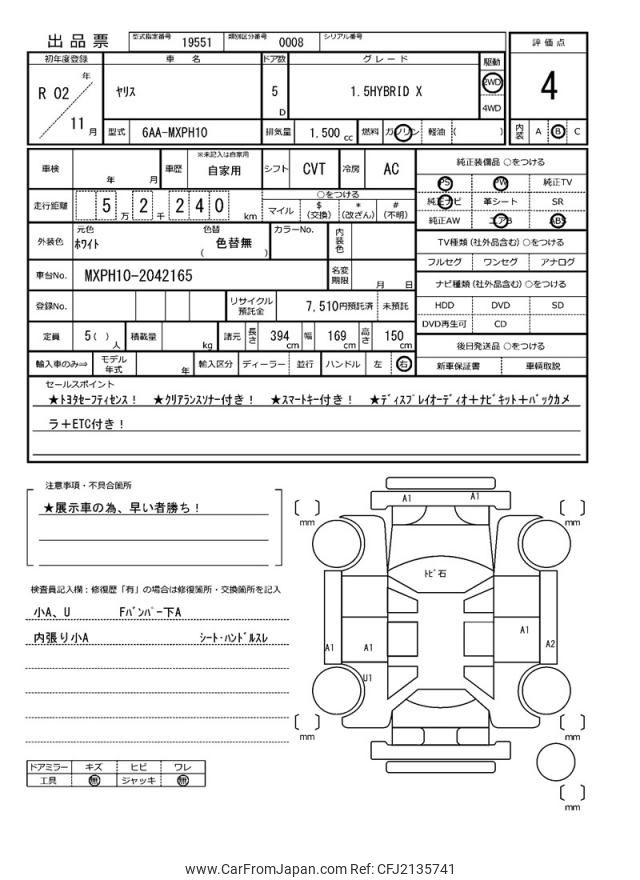 出品票 型式指定番号 19551 類別区分番号 0008 シリアル番号
評価点
4
内装 A B C
初年度登録 車名 ドア数 グレード 駆動
R 02 年 11 月 ヤリス 5 D 1.5HYBRID X 2WD 4WD
型式 6AA-MXPH10 排気量 1.500 cc 燃料 ガソリン 軽油 ( )
車検 年 月 車歴 ※未記入は自家用 自家用 シフト CVT 冷房 AC
走行距離 5 万 2 千 2 4 0 km ○をつける
マイル $(交換) *(改ざん) #(不明)
外装色 元色 ホワイト 色替 ( 色替無 ) カラーNo. 内装色
車台No. MXPH10-2042165 名変期限 月 日
登録No. リサイクル預託金 7,510円預託済 未預託
定員 5( )人 積載量 kg 諸元 長さ 394 cm 幅 169 cm 高さ 150 cm
輸入車のみ⇒ モデル年式 年 輸入区分 ディーラー 並行 ハンドル 左 右
純正装備品 ○をつける
PS PW 純正TV
純正ナビ 革シート SR
純正AW エアB ABS
TV種類 (社外品含む) ○をつける
フルセグ ワンセグ アナログ
ナビ種類 (社外品含む) ○をつける
HDD DVD SD
DVD再生可 CD
後日発送品 ○をつける
新車保証書 車輌取説
セールスポイント
★トヨタセーフティセンス! ★クリアランスソナー付き! ★スマートキー付き! ★ディスプレイオーディオ+ナビキット+バックカメ
ラ+ETC付き!
注意事項・不具合箇所
★展示車の為、早い者勝ち!
検査員記入欄:修復歴「有」の場合は修復箇所・交換箇所を記入
小A、U Fバンパー下A
内張り小A シート・ハンドルスレ
ドアミラー キズ ヒビ ワレ
工具 無 ジャッキ 無
A1 A1
mm mm
トビ石
A1 A1 A1 A2
U1
mm mm
mm
www.CarFromJapan.com Ref: CFJ2135741